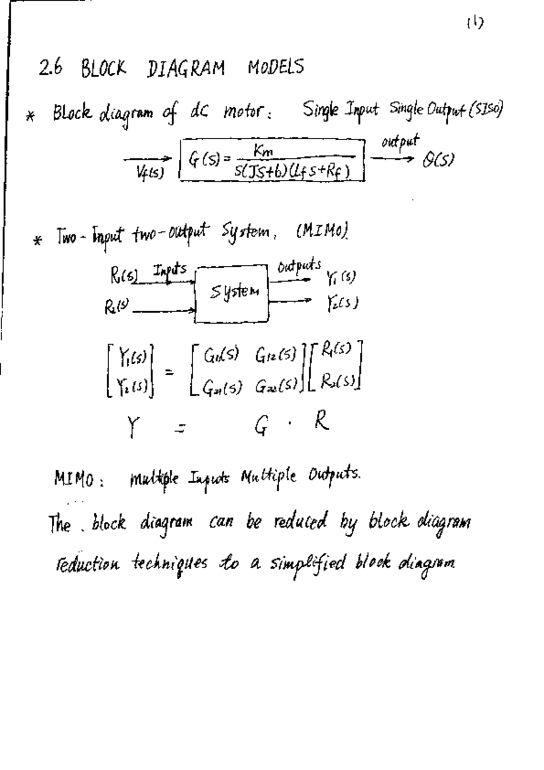 (1)
2.6 BLOCK DIAGRAM MODELS
* Block diagram of dc motor: Single Input Single Output (SISO)
Vf(s) G(s) = Km / S(JS+b)(LfS+Rf) output θ(S)
* Two-Input two-output System, (MIMO)
R1(S) Inputs System Outputs Y1(S)
R2(S) Y2(S)
[Y1(S)] = [G11(S) G12(S)] [R1(S)]
[Y2(S)] [G21(S) G22(S)] [R2(S)]
Y = G · R
MIMO: Multiple Inputs Multiple Outputs.
The block diagram can be reduced by block diagram
reduction techniques to a simplified block diagram